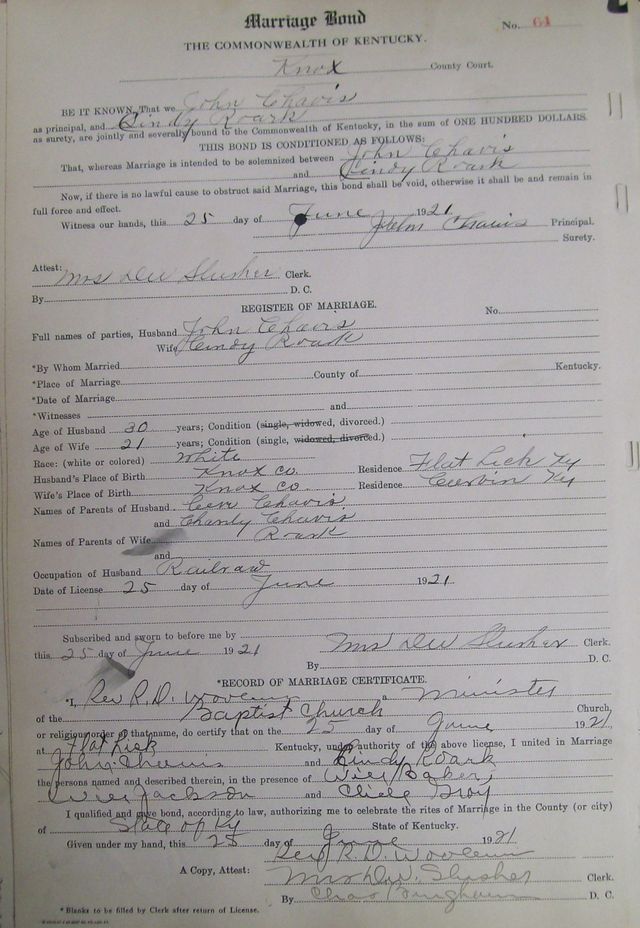 Marriage Bond
No. 64
THE COMMONWEALTH OF KENTUCKY.
Knox County Court.
BE IT KNOWN, That we John Chavis
as principal, and Cindy Roark
as surety, are jointly and severally bound to the Commonwealth of Kentucky, in the sum of ONE HUNDRED DOLLARS.
THIS BOND IS CONDITIONED AS FOLLOWS:
That, whereas Marriage is intended to be solemnized between John Chavis
and Cindy Roark
Now, if there is no lawful cause to obstruct said Marriage, this bond shall be void, otherwise it shall be and remain in
full force and effect.
Witness our hands, this 25 day of June 1921
John Chavis Principal.
Surety.
Attest:
Mrs DW Slusher Clerk.
By D. C.
REGISTER OF MARRIAGE.
No.
Full names of parties, Husband John Chavis
Wife Cindy Roark
*By Whom Married
*Place of Marriage County of Kentucky.
*Date of Marriage
*Witnesses and
Age of Husband 30 years; Condition (single, widowed, divorced.)
Age of Wife 21 years; Condition (single, widowed, divorced.)
Race: (white or colored) White
Husband's Place of Birth Knox Co. Residence Flat Lick Ky
Wife's Place of Birth Knox Co. Residence Ky
Names of Parents of Husband Chavis
and Chavis
Names of Parents of Wife Roark
and
Occupation of Husband Railroad
Date of License 25 day of June 1921
Subscribed and sworn to before me by
this 25 day of June 1921 Mrs DW Slusher Clerk.
By D. C.
*RECORD OF MARRIAGE CERTIFICATE.
*I, Rev R.D. a Minister
of the Baptist Church Church,
or religious order of that name, do certify that on the 25 day of June 1921
at Flat Lick Kentucky, under authority of the above license, I united in Marriage
John Chavis and Cindy Roark
the persons named and described therein, in the presence of Will Baker,
Will Jackson and
I qualified and gave bond, according to law, authorizing me to celebrate the rites of Marriage in the County (or city)
of State of Ky State of Kentucky.
Given under my hand, this 25 day of June 1921
Rev R.D.
A Copy, Attest: Mrs D.W. Slusher Clerk.
By Chas Bingham D. C.
*Blanks to be filled by Clerk after return of License.